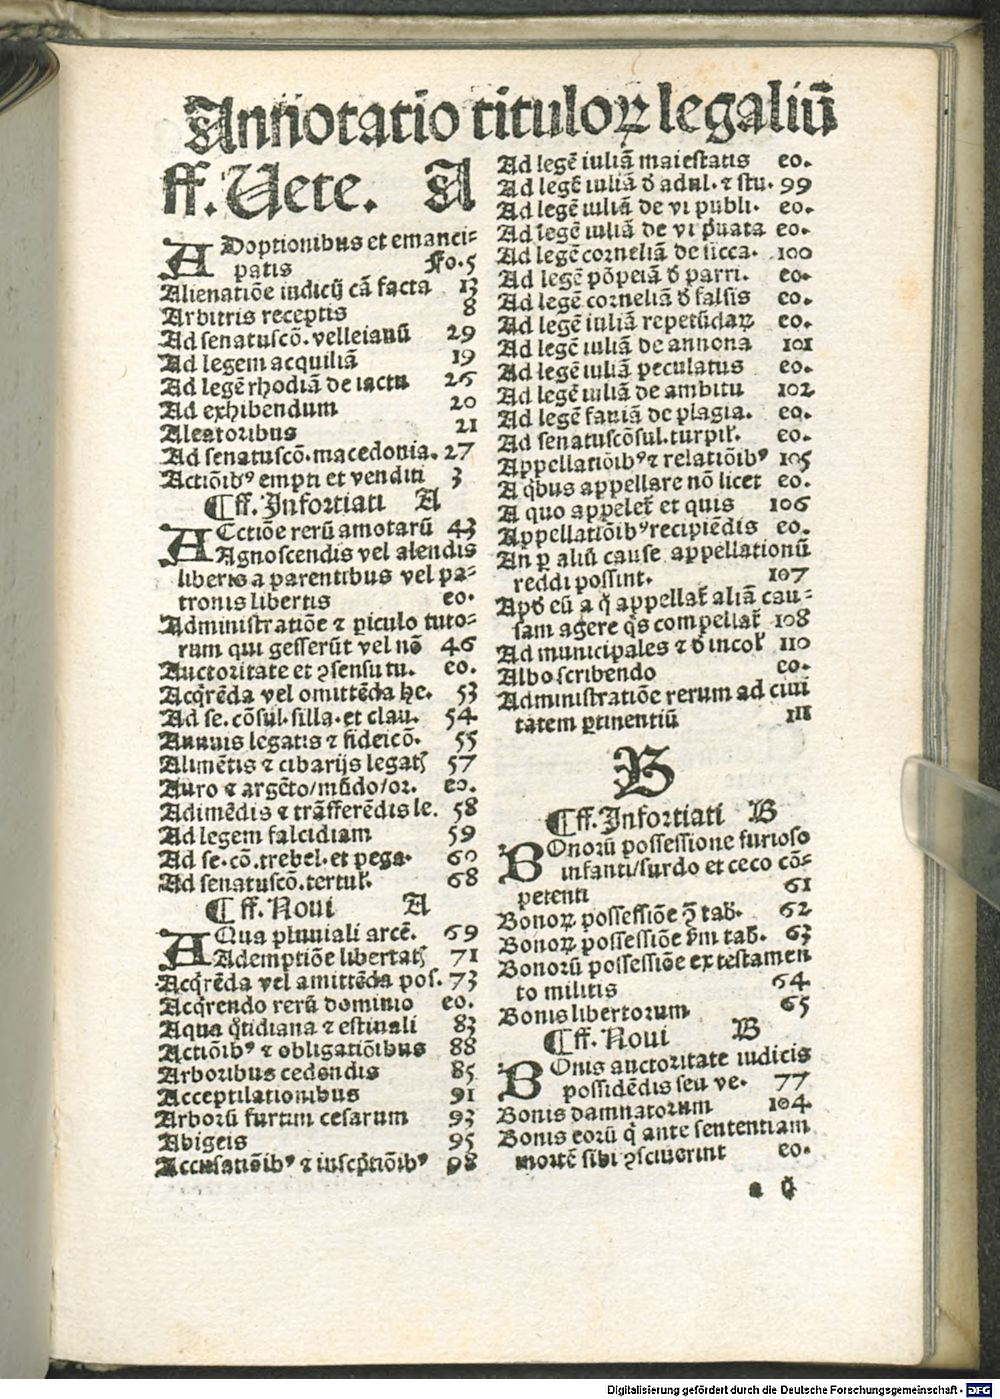 Annotatio tituloꝝ legaliū
ff. Uete. A
ADoptionibus et emanci⸗
patis Fo.5
Alienatiōe iudicij cā facta 13
Arbitris receptis 8
Ad senatuscō. velleianū 29
Ad legem acquiliā 19
Ad legē rhodiā de iactu 26
Ad exhibendum 20
Aleatoribus 21
Ad senatuscō.macedonia. 27
Actiōibꝰ empti et venditi 3
¶ff. Infortiati A
ACctiōe rerū amotarū 43
Agnoscendis vel alendis
liberis a parentibus vel pa⸗
tronis libertis eo.
Administratiōe ⁊ ꝑiculo tuto⸗
rum qui gesserūt vel nō 46
Auctoritate et ꝯsensu tu. eo.
Acq̇rēda vel omittēda he. 53
Ad se. cōsul.silla.et clau. 54
Annuis legatis ⁊ fideicō. 55
Alimētis ⁊ cibarijs legatꝭ 57
Auro ⁊ argēto/mūdo/or. eo.
Adimēdis ⁊ trāfferēdis le. 58
Ad legem falcidiam 59
Ad se.cō.trebel.et pega. 60
Ad senatuscō.tertuł. 68
¶ff. Noui A
AQua pluuiali arcē. 69
Ademptiōe libertatꝭ 71
Acq̇rēda vel amittēda pos. 73
Acq̇rendo rerū dominio eo.
Aqua q̊tidiana ⁊ estiuali 83
Actiōibꝰ ⁊ obligatiōibus 88
Arboribus cedendis 85
Acceptilationibus 91
Arborū furtim cesarum 93
Abigeis 95
Accusatiōibꝰ ⁊ inscp̄tiōibꝰ 98
Ad legē iuliā maiestatis eo.
Ad legē iuliā ꝺ̄ adul.⁊ stu. 99
Ad legē iuliā de vi publi. eo.
Ad legē iuliā de vi p̄uata eo.
Ad legē corneliā de sicca. 100
Ad legē pōpeiā ꝺ̄ parri. eo.
Ad legē corneliā ꝺ̄ falsis eo.
Ad legē iuliā repetūdaꝝ eo.
Ad legē iuliā de annona 101
Ad legē iuliā peculatus eo.
Ad legē iuliā de ambitu 102
Ad legē fauiā de plagia. eo.
Ad senatuscōsul.turpił. eo.
Appellatiōibꝰ⁊ relatiōibꝰ 105
A q̇bus appellare nō licet eo.
A quo appeleť et quis 106
Appellatiōibꝰrecipiēdis eo.
An ꝑ aliū cause appellationū
reddi possint. 107
Apꝺ̄ eū a q̊ appellať aliā cau⸗
sam agere q̇s compellať 108
Ad municipales ⁊ ꝺ̄ incoł 110
Albo scribendo eo.
Administratiōe rerum ad ciui
tatem ꝑtinentiū 111
B
¶ff. Infortiati B
BOnorū possessione furioso
infanti/surdo et ceco cō⸗
petenti 61
Bonoꝝ possessiōe ꝯ̄ tab. 62
Bonoꝝ possessiōe ẜm tab. 63
Bonorū possessiōe ex testamen
to militis 64
Bonis libertorum 65
¶ff. Noui B
BOnis auctoritate iudicis
possidēdis seu ve. 77
Bonis damnatorum 104
Bonis eorū q̇ ante sententiam
mortē sibi ꝯsciuerint eo.
a ij
Digitalisierung gefördert durch die Deutsche Forschungsgemeinschaft - DFG